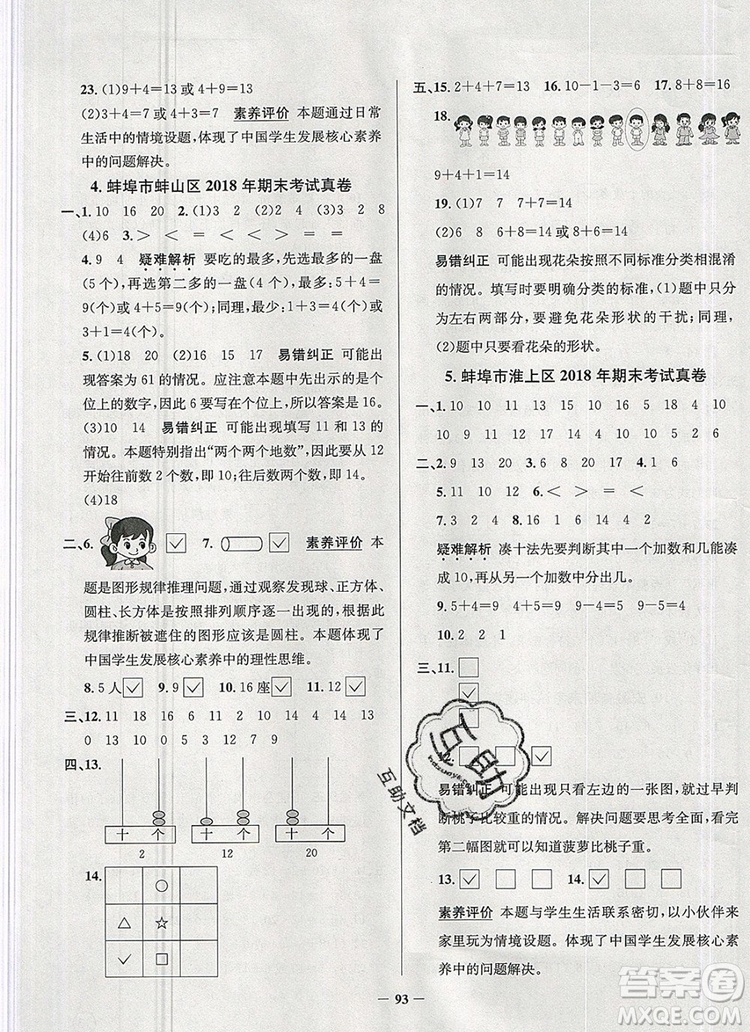 23. (1)9+4=13 或 4+9=13
(2)3+4=7 或 4+3=7 素养评价 本题通过日常
生活中的情境设题,体现了中国学生发展核心素养
中的问题解决。
4. 蚌埠市蚌山区 2018 年期末考试真卷
一、1. 10 16 20 2. (1)3 (2)3 (3)3 2 8
(4)6 3. > < = < < >
4. 9 4 疑难解析 要吃的最多,先选最多的一盘
(5 个),再选第二多的一盘(4 个),即:5+4=
9(个)或 4+5=9(个);同理,最少:1+3=4(个)或
3+1=4(个);
5. (1)18 20 (2)16 15 17 易错纠正 可能出
现答案为 61 的情况。应注意本题十位上的数是
1,个位上的数比十位上的数大 5,则个位上的数
为 6,因此 6 要写在个位上,所以答案是 16。
(3)10 14 易错纠正 可能出现填写 11 和 13 的
情况。本题特别指出“两个两个地数”,因此要从 12
开始往前数 2 个数,即 10;往后数两个数,即 14。
(4)18
二、6. ✓ 7. ✓ 素养评价 本
题是图形规律推理问题,通过观察发现球、正方体、
圆柱、长方体是按照排列顺序逐一出现的,按照此
规律推断被遮住的图形应该是圆柱。本题体现了
中国学生发展核心素养中的理性思维。
8. 5 人 ✓ 9. 9 ✓ 10. 16 座 ✓ 11. 12 ✓
三、12. 11 18 16 6 14 10 2 13 6
0 13 10 5 12 7 9
四、13.
十 个 十 个 十 个
2 12 20
14.
○
△ ☆
✓ □
五、15. 2+4+7=13 16. 10-1-3=6 17. 8+8=16
18.
9+4+1=14
19. (1)7 7 7+7=14
(2)6 8 6+8=14 或 8+6=14
易错纠正 可能出现花朵按照不同标准分类相混淆
的情况。填写时要明确分类的标准,(1)题中只分
为左右两部分,要避免花朵形状的干扰;同理,
(2)题中要避免花朵的形状。
5. 蚌埠市淮上区 2018 年期末考试真卷
一、1. 10 10 13 5 17 18 4 10
10 9 11 12 6 2 8 17
二、2. 9 13 20 3. 6 5 4. 20 17 5. 1 6
6. 9 11 10 12 < > = <
7. 3 2 4 8. 16 18 14 4 2
疑难解析 凑十法先要判断其中一个加数和几能凑
成 10,再从另一个加数中分出几。
9. 5+4=9 4+5=9 9-5=4 9-4=5
10. 2 2 1
三、11.
✓
12. ✓
易错纠正 可能出现只看左边的一张图,就过早判
断桃子比较重的情况。解决问题要思考全面,看完
第二幅图就可以知道菠萝比桃子重。
13. ✓ 14. ✓
素养评价 本题与学生生活联系密切,以小伙伴来
家里玩为情境设题。体现了中国学生发展核心素
养中的问题解决。
— 93 —
互助
互助文档
答案圈
MXQE.COM